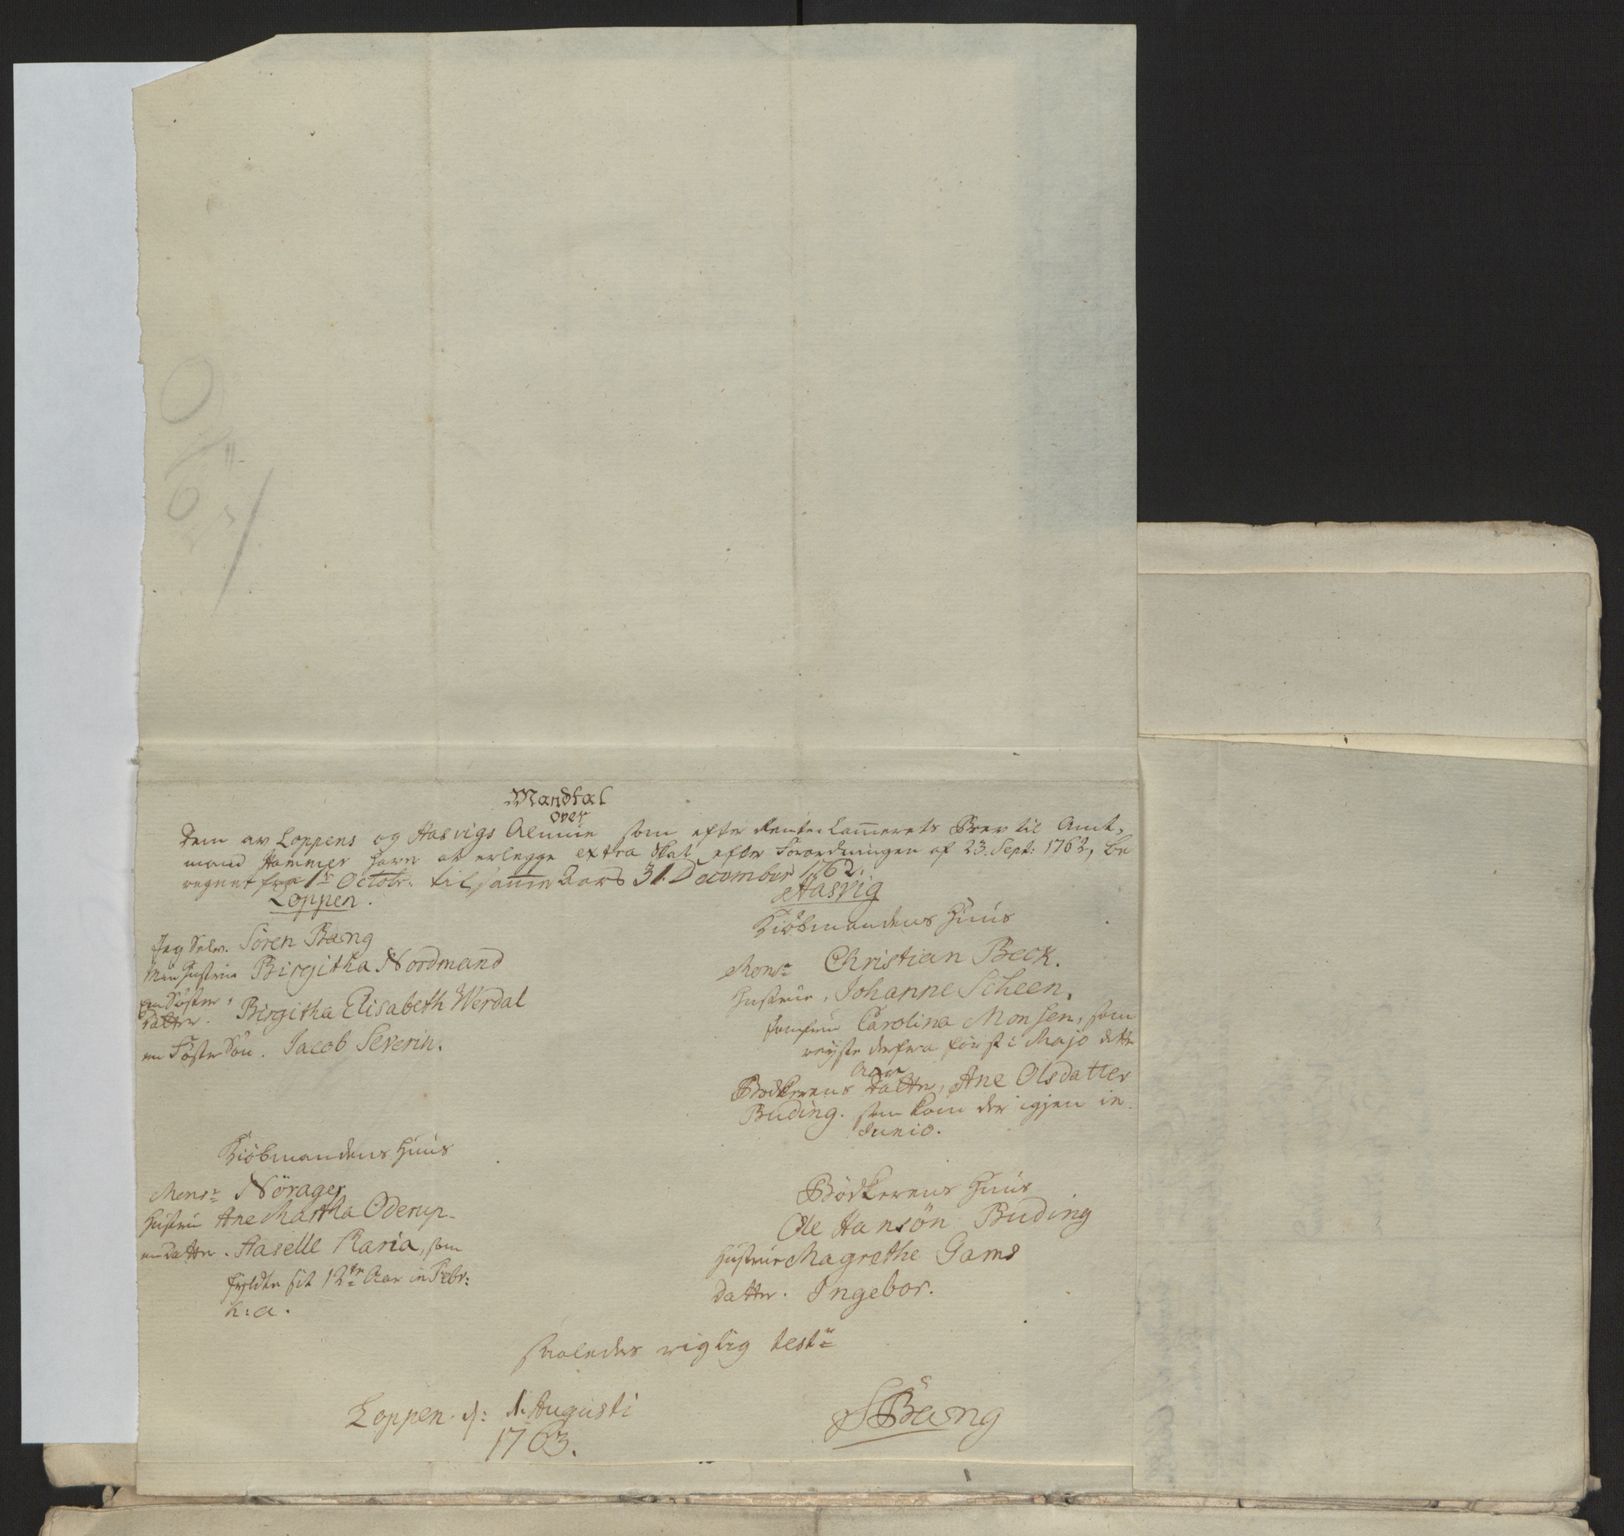 Mandtal
over
Dem av Loppens og Hasvigs Almue som efter Rente Cammerets Brev til Amt,
mand Hammer have at erlegge extra Skat efter Forordningen af 23. Sept: 1762, be
regnet fra 1r Octobr: til samme Aars 31. December 1762.
Loppen.
Jeg Selv. Sören Bang
Min Hustrue Birgitha Nordmand
en Söster,
datter. Birgitha Elisabeth Werdal
en Föster Sön. Jacob Severin.
Kiöbmandens Huus
Monsr Nörager
Hustrue Ane Martha Oderup
en Datter. Haselle Karia, som
fyldte sit 12te Aar in Febr:
h: a.
Hasvig
Kiöbmandens Huus
Monsr Christian Beck.
Hustrue, Johanne Scheen.
Jomfrue Carolina Monsen, som
reyste derfra först i Majo dette
Aar
Bödkerens Datter, Ane Olsdatter
Buding. som kom der igjen in
Junio.
Bödkerens Huus
Ole Hansön Buding
Hustrue Magrethe Gams
Datter. Ingebor.
saaledes rigtig test:
Loppen. d: 1. Augusti
1763.
SBang